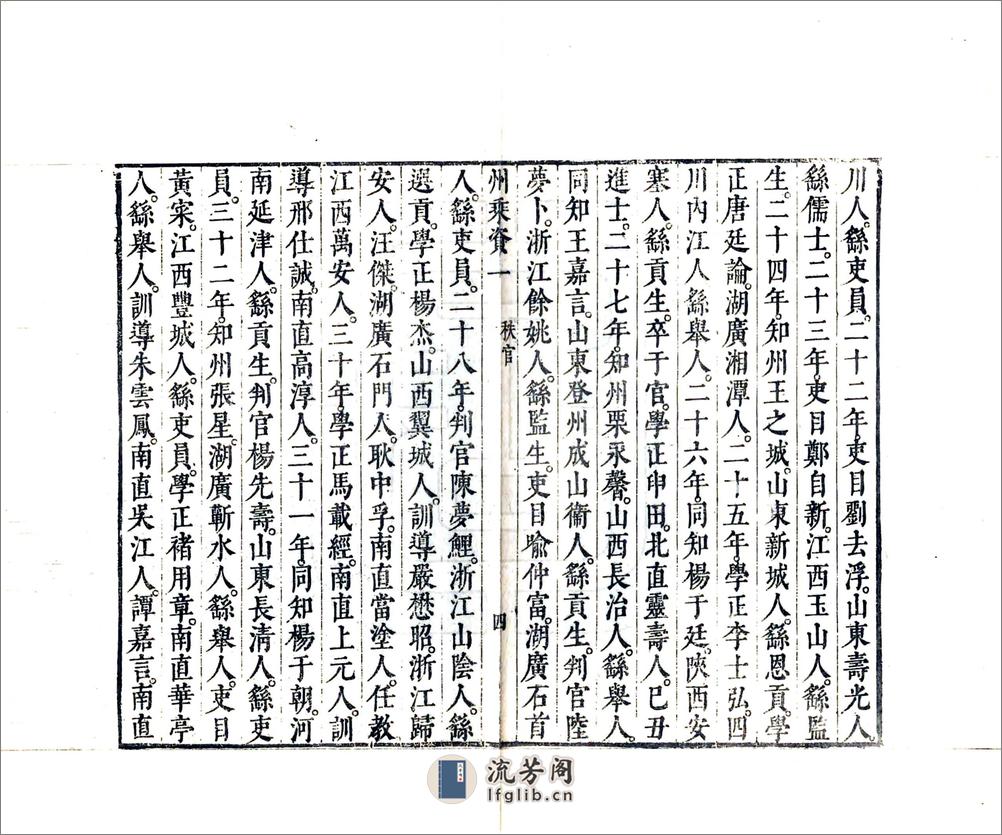 川人。繇吏員。二十二年。吏目劉去浮。山東壽光人。
繇儒士。二十三年。吏目鄭自新。江西玉山人。繇監
生。二十四年。知州王之城。山東新城人。繇恩貢。學
正唐廷論。湖廣湘潭人。二十五年。學正李士弘。四
川內江人。繇舉人。二十六年。同知楊于廷。陝西安
塞人。繇貢生。卒于官。學正申田。北直靈壽人。己丑
進士。二十七年。知州栗永馨。山西長治人。繇舉人。
同知王嘉言。山東登州成山衞人。繇貢生。判官陸
夢卜。浙江餘姚人。繇監生。吏目喻仲富。湖廣石首
州乘資一 秩官 四
人。繇吏員。二十八年。判官陳夢鯉。浙江山陰人。繇
選貢。學正楊杰。山西翼城人。訓導嚴懋昭。浙江歸
安人。汪傑。湖廣石門人。耿中孚。南直當塗人。任教
江西萬安人。三十年。學正馬載經。南直上元人。訓
導邢仕誠。南直高淳人。三十一年。同知楊于朝。河
南延津人。繇貢生。判官楊先壽。山東長清人。繇吏
員。三十二年。知州張星。湖廣蘄水人。繇舉人。吏目
黃寀。江西豐城人。繇吏員。學正褚用章。南直華亭
人。繇舉人。訓導朱雲鳳。南直吳江人。譚嘉言。南直
流芳阁
lfglib.cn